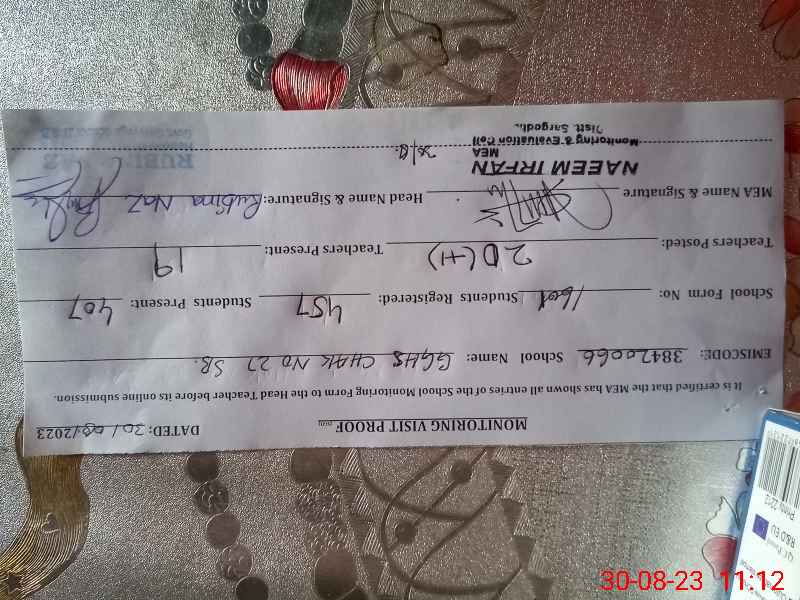 MONITORING VISIT PROOF
DATED: 30/08/2023
It is certified that the MEA has shown all entries of the School Monitoring Form to the Head Teacher before its online submission.
EMISCODE: 38420066 School Name: GGHS CHAK NO 27 SB.
School Form No: 1601 Students Registered: 457 Students Present: 407
Teachers Posted: 20(+1) Teachers Present: 19
MEA Name & Signature Head Name & Signature: Rubina Naz
NAEEM IRFAN
MEA
Monitoring & Evaluation Cell
Distt. Sargodh
30-08-23 11:12
R&D EU